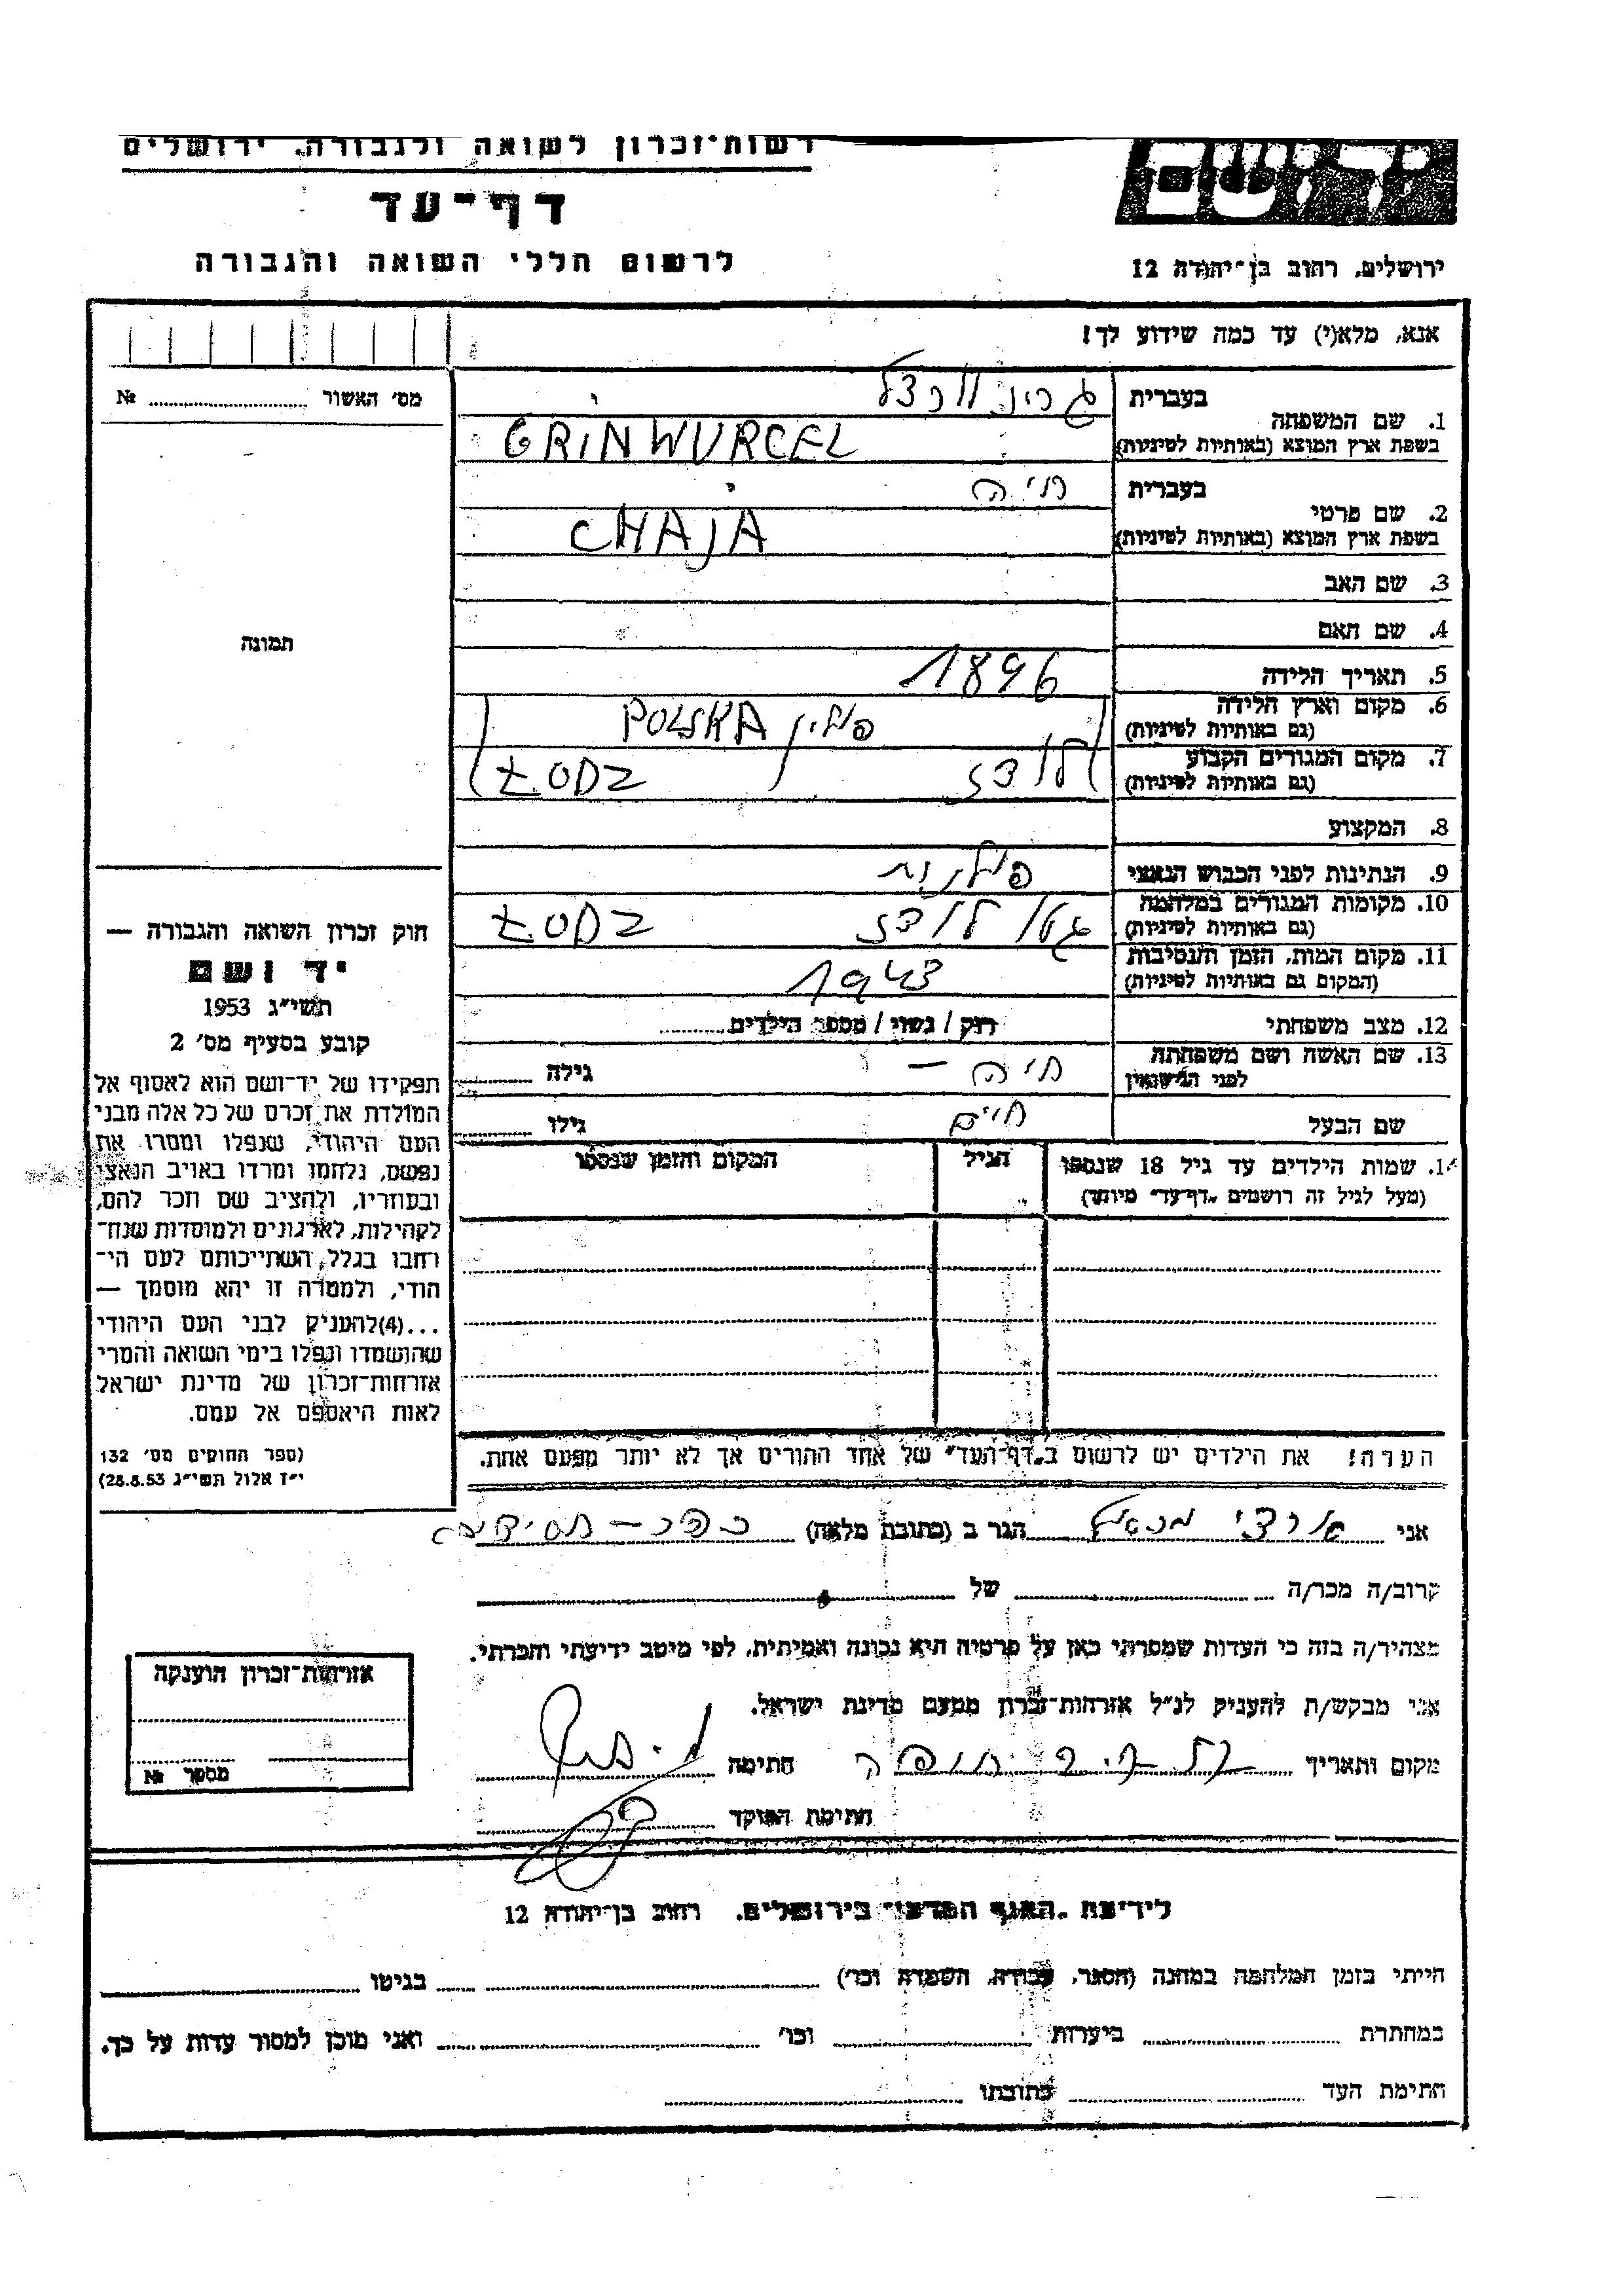 רשות־זכרון לשואה ולגבורה, ירושלים
דף־עד
לרשום חללי השואה והגבורה
יד ושם
ירושלים, רחוב בן־יהודה 12
אנא, מלא(י) עד כמה שידוע לך!
מס׳ האשור № ........
בעברית גרינוורצל
1. שם המשפחה
בשפת ארץ המוצא (באותיות לטיניות) GRINWURCEL
בעברית חיה
2. שם פרטי
בשפת ארץ המוצא (באותיות לטיניות) CHAJA
3. שם האב
4. שם האם
5. תאריך הלידה 1896
6. מקום וארץ הלידה פולין POLSKA
(גם באותיות לטיניות)
7. מקום המגורים הקבוע לודז ŁODZ
(גם באותיות לטיניות)
8. המקצוע
9. הנתינות לפני הכבוש הנאצי פולנית
10. מקומות המגורים במלחמה גטו לודז ŁODZ
(גם באותיות לטיניות)
11. מקום המות, הזמן והנסיבות 1943
(המקום גם באותיות לטיניות)
12. מצב משפחתי רווק / נשוי / מספר הילדים........
13. שם האשה ושם משפחתה חיה — גילה ........
לפני הנישואין
שם הבעל חיים גילו ........
14. שמות הילדים עד גיל 18 שנספו הגיל המקום והזמן שנספו
(מעל לגיל זה רושמים „דף־עד״ מיוחד)
תמונה
חוק זכרון השואה והגבורה —
יד ושם
תשי״ג 1953
קובע בסעיף מס׳ 2
תפקידו של יד־ושם הוא לאסוף אל
המולדת את זכרם של כל אלה מבני
העם היהודי, שנפלו ומסרו את
נפשם, נלחמו ומרדו באויב הנאצי
ובעוזריו, ולהציב שם וזכר להם,
לקהילות, לארגונים ולמוסדות שנח־
רבו בגלל השתייכותם לעם הי־
הודי, ולמטרה זו יהא מוסמך —
...(4)להעניק לבני העם היהודי
שהושמדו ונפלו בימי השואה והמרי
אזרחות־זכרון של מדינת ישראל
לאות היאספם אל עמם.
(ספר החוקים מס׳ 132
י״ז אלול תשי״ג 28.8.53)
הערה! את הילדים יש לרשום ב„דף־העד״ של אחד ההורים אך לא יותר מפעם אחת.
אני הגר ב (כתובת מלאה) כפר-חסידים
קרוב/ה מכר/ה ........ של ........
מצהיר/ה בזה כי העדות שמסרתי כאן על פרטיה היא נכונה ואמיתית, לפי מיטב ידיעתי והכרתי.
אני מבקש/ת להעניק לנ״ל אזרחות־זכרון מטעם מדינת ישראל.
מקום ותאריך חתימה
חתימת הפוקד
אזרחות־זכרון הוענקה
מספר №
לידיעת „האגף המדעי״ בירושלים, רחוב בן־יהודה 12
הייתי בזמן המלחמה במחנה (הסגר, עבודה, השמדה וכו׳) ........ בגיטו ........
במחתרת ........ ביערות ........ וכו׳ ........ ואני מוכן למסור עדות על כך.
חתימת העד ........ כתובתו ........